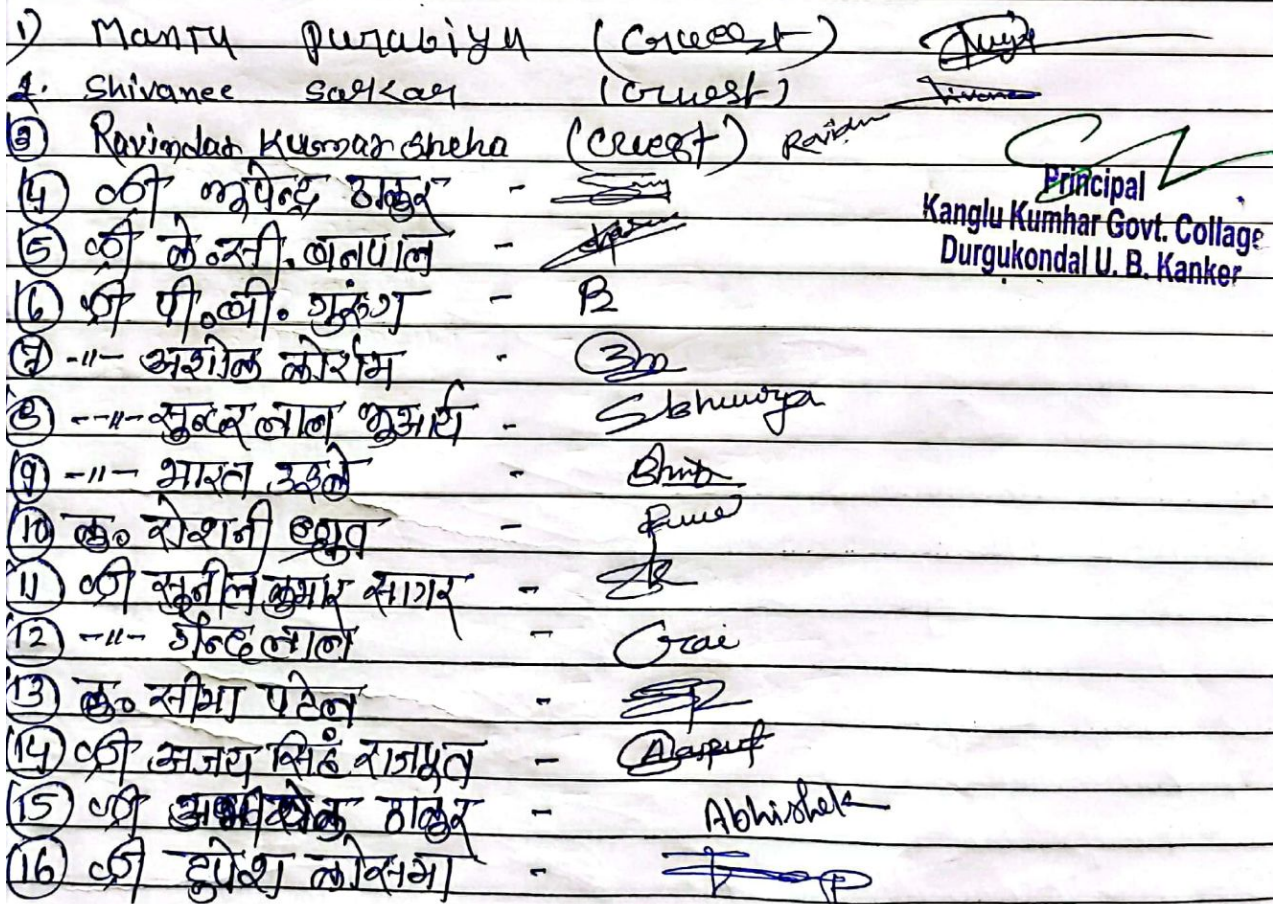 1) Mantu purabiya (Guest)
2. Shivanee Sarkar (Guest)
③ Ravindar Kumar Sneha (Guest) Ravidn
④ श्री भूपेन्द्र ठाकुर -
⑤ श्री के.सी. वनपाल -
⑥ श्री पी.वी. गुरुंग - B
⑦ -॥- अशोक कोर्राम -
⑧ --॥- सुन्दर लाल भुआर्य - Sbhuwrya
⑨ -॥- भारत उइके -
⑩ कु. रोशनी ध्रुव -
⑪ श्री सुनील कुमार सागर -
⑫ -॥- गेन्दलाल - Grai
⑬ कु. सीमा पटेल -
⑭ श्री अजय सिंह राजपूत -
⑮ श्री अभिषेक ठाकुर - Abhishek
⑯ श्री टुपेश कोसमा -
Principal
Kanglu Kumhar Govt. Collage
Durgukondal U. B. Kanker